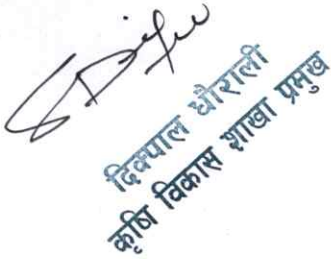 दिक्पाल थौराली
कृषि विकास शाखा प्रमुख